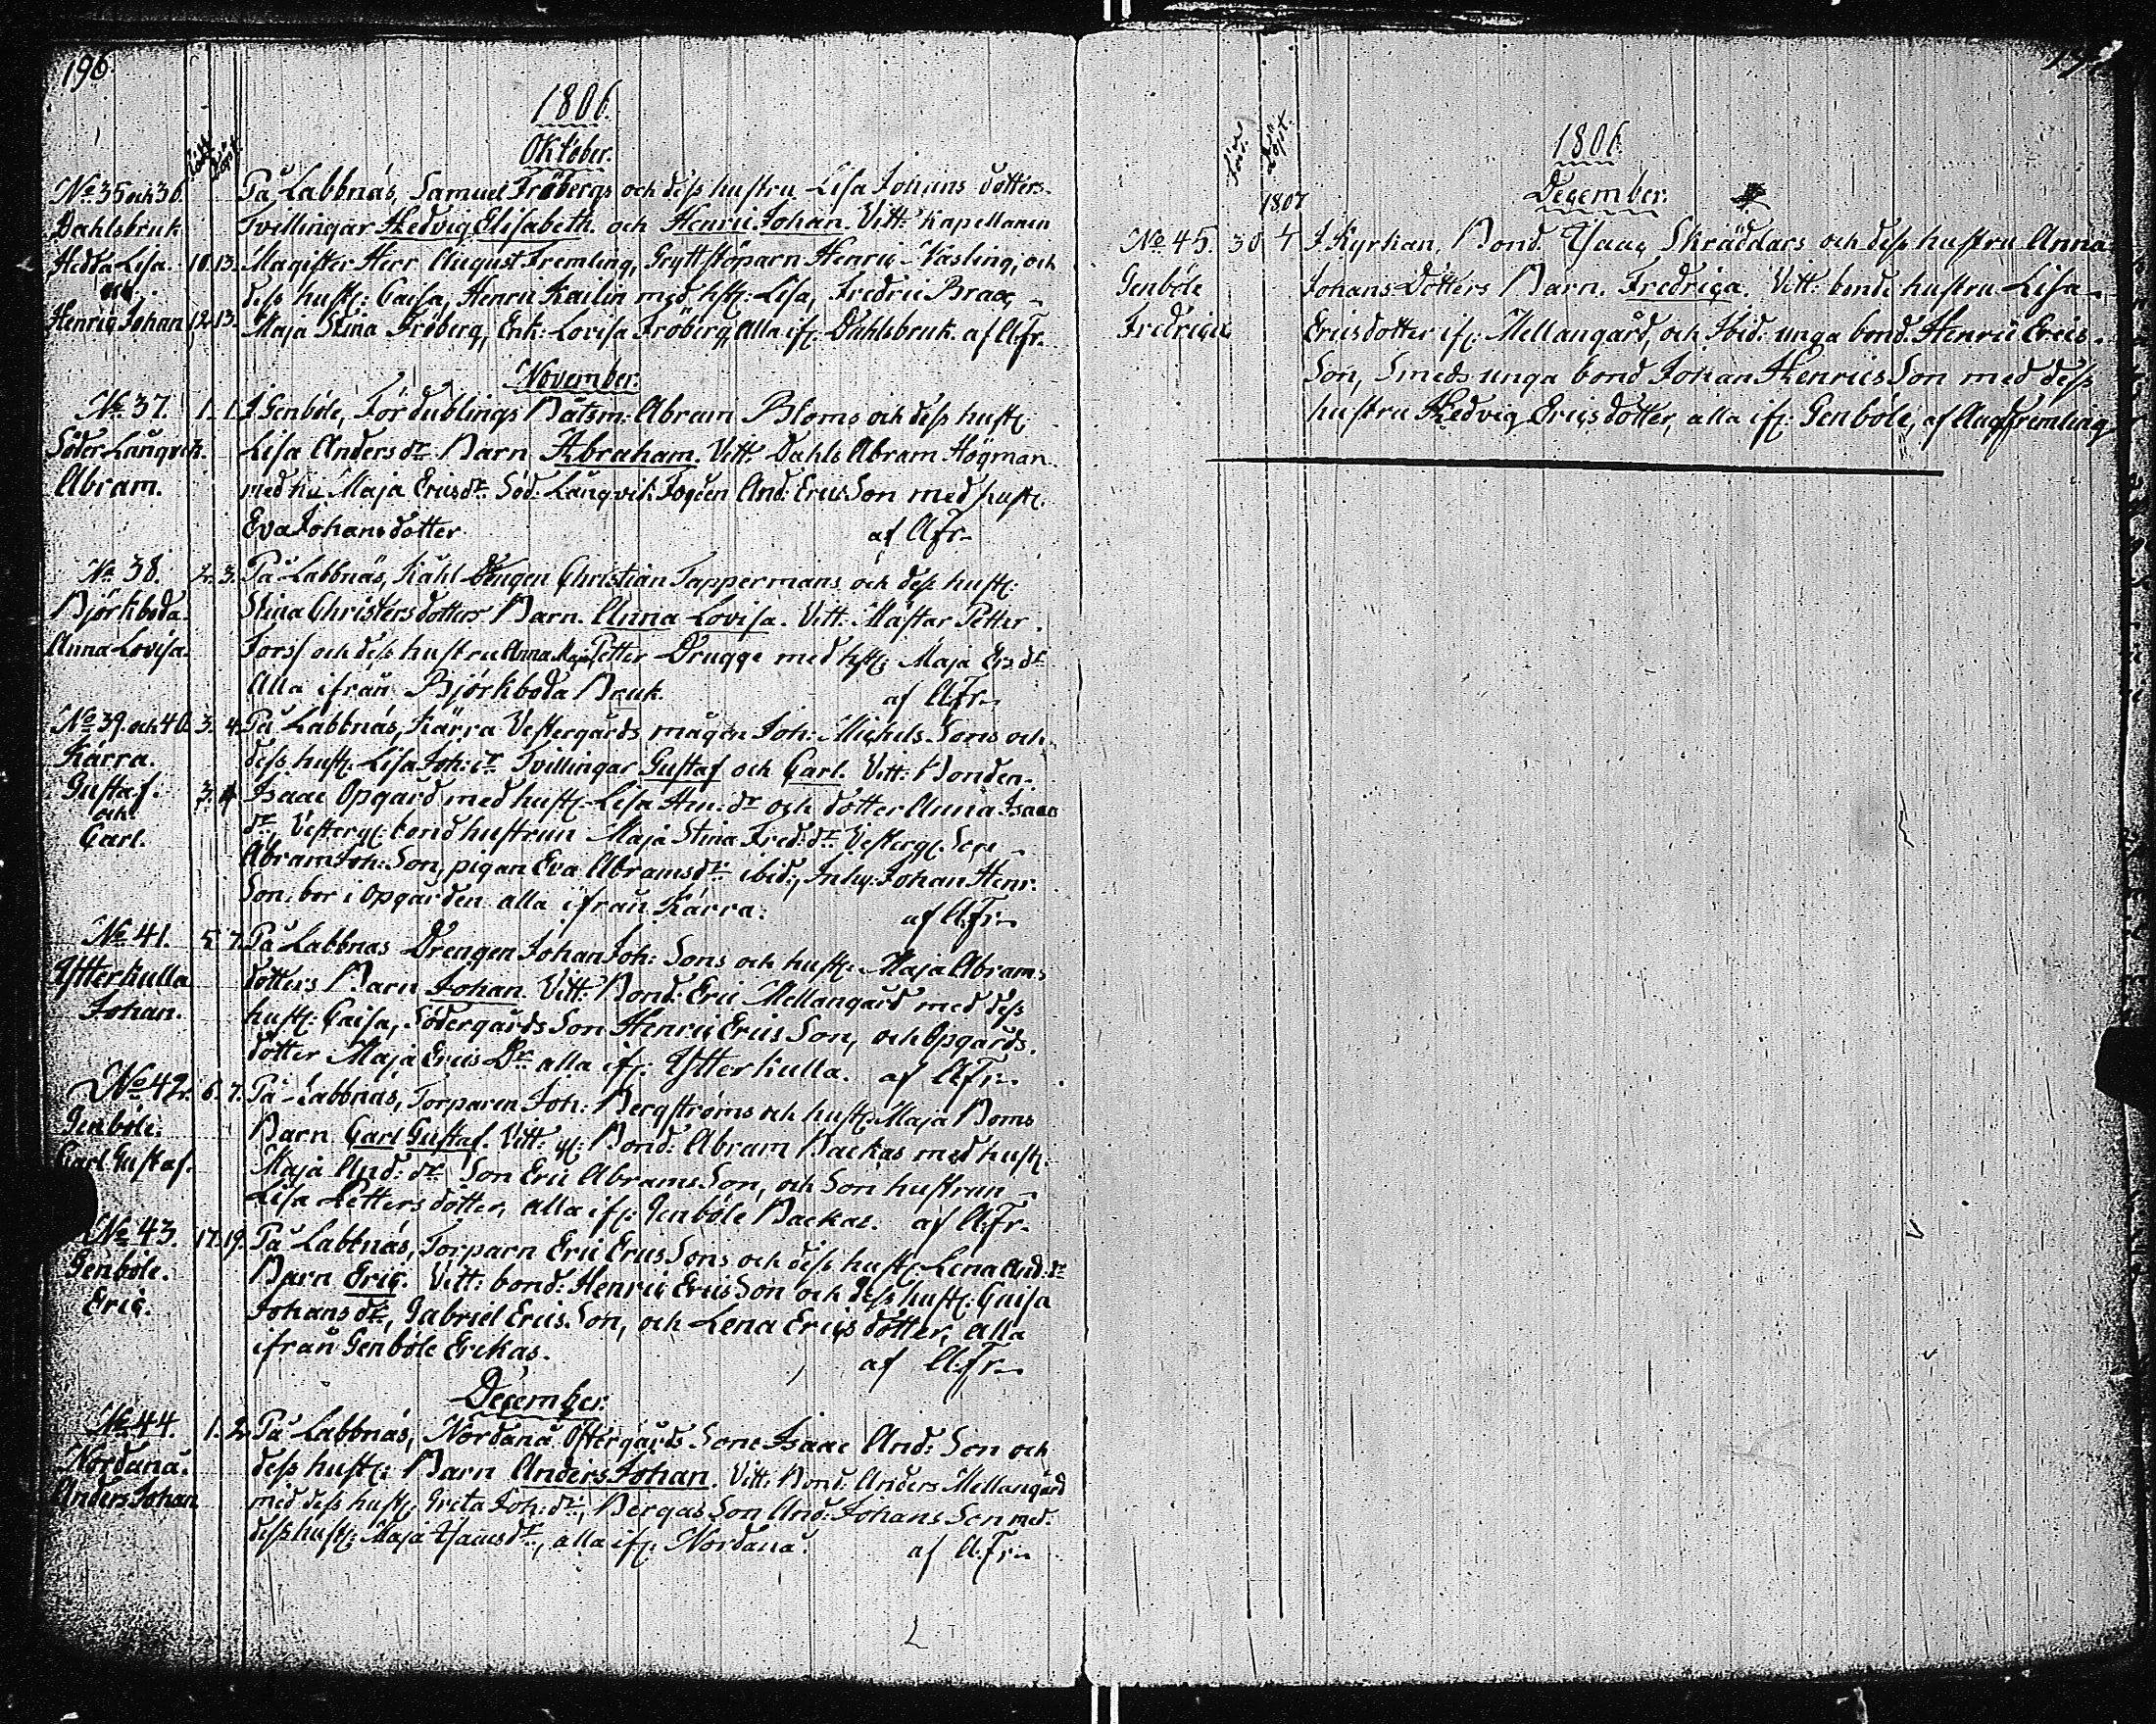 196.
1806.
Oktober.
Född Döpt.
No 35 och 36. På Labbnäs, Samuel Fröbergs och dess hustru Lisa Johans dotters
Dahlsbruk Tvillingar Hedvig Elisabeth och Henric Johan. Vitt: Kapellanen
Hedda Lisa. 10. 13. Magister Herr August Fremling, Gryttstöparn Henric Vasling, och
och dess hust: Caisa, Henric Kailin med hst: Lisa, Fredric Braax
Henric Johan 12. 13. Maja Stina Fröberg, Enk: Lovisa Fröberg, Alla ifr: Dahlsbruk. af A.Fr.
November.
No 37. 1. 1. I Genböle, För dublings Båtsm: Abram Bloms och dess hustr:
Söder Långvik. Lisa Anders dr Barn Abraham. Vitt: Dahls Abram Högman
Abram. med hu Maja Erics dr. Söd: Långvik: And: Erics Son med hustr:
Eva Johans dotter af A Fr.
No 38. 2. 3. På Labbnäs, Kåhl Drengen Christian Tappermans och dess hustr:
Björkboda. Stina Christersdotters Barn. Anna Lovisa. Vitt: Mästar Petter
Anna Lovisa. Forss och dess hustru Anna Maja Petter Drugge med hstr: Maja Ers dr
Alla ifrån Björkboda Bruk. af A.Fr.
No 39. och 40. 3. 4. På Labbnäs, Kärra Vestergårds mågen Joh: Michels Sons och
Kärra. dess hustr: Lisa Joh: dr Tvillingar Gustaf och Carl. Vitt: Bonden
Gustaf. 3. 4. Isaac Opgård med hustr: Lisa Hen: dr och dotter Anna Isaacs
och dr Vesterg: bond hustrun Maja Stina Fred: dr Vesterg: Son
Carl. Abram Joh: Son, pigan Eva Abramsdr ibid:, Inhy: Johan Henr:
Son, bor i Opgården alla ifrån Kärra: af A.Fr.
No 41. 5. 7. På Labbnäs Drengen Johan Joh: Sons och hustr: Maja Abrams
Ytterkulla dotters Barn Johan. Vitt: Bond: Eric Mellangård med dess
Johan. hustr: Caisa, Södergårds Son Henric Erics Son, och Opgårds
dotter Maja Erics Dr alla ifr: Ytterkulla. af A.Fr.
No 42. 6. 7. På Labbnäs, Torparen Joh: Bergströms och hustr: Maja Boms
Genböle. Barn Carl Gustaf. Vitt: Bond: Abram Backas med hustr:
Carl Gustaf. Maja And: dr Son Eric Abrams Son, och Son hustrun
Lisa Petters dotter, alla ifr: Genböle Backas. af A.Fr.
No 43. 17. 19. På Labbnäs, Torparn Eric Erics Sons och dess hustr: Lena And: dr
Genböle. Barn Eric. Vitt: bond: Henric Erics Son och dess hustr: Caisa
Eric. Johans dr, Gabriel Erics Son, och Lena Erics dotter, alla
ifrån Genböle Erikas. af A.Fr.
December.
No 44. 1. 2. På Labbnäs, Nordanå Östergårds Sone Isaac And: Son och
Nordanå. dess hustr: Barn Anders Johan. Vitt: Bond: Anders Mellangård
Anders Johan med dess hustr: Greta Joh: dr, Bergas Son And: Johans Son med
dess hustr: Maja Isaacs dr, alla ifr: Nordanå. af A.Fr.
Född. Döpt.
1806.
December.
1807
No 45. 30 4 I Kyrkan, Bond. Isaac Skräddars och dess hustru Anna
Genböle Johans Dotters Barn. Fredrica. Vitt: bonde hustru Lisa
Fredrica Ericsdotter ifr: Mellangård, och Ibid: unga bond: Henric Erics
Son, Smeds unga bond Johan Henrics Son med dess
hustru Hedvig Erics dotter, alla ifr: Genböle, af Aug Fremling